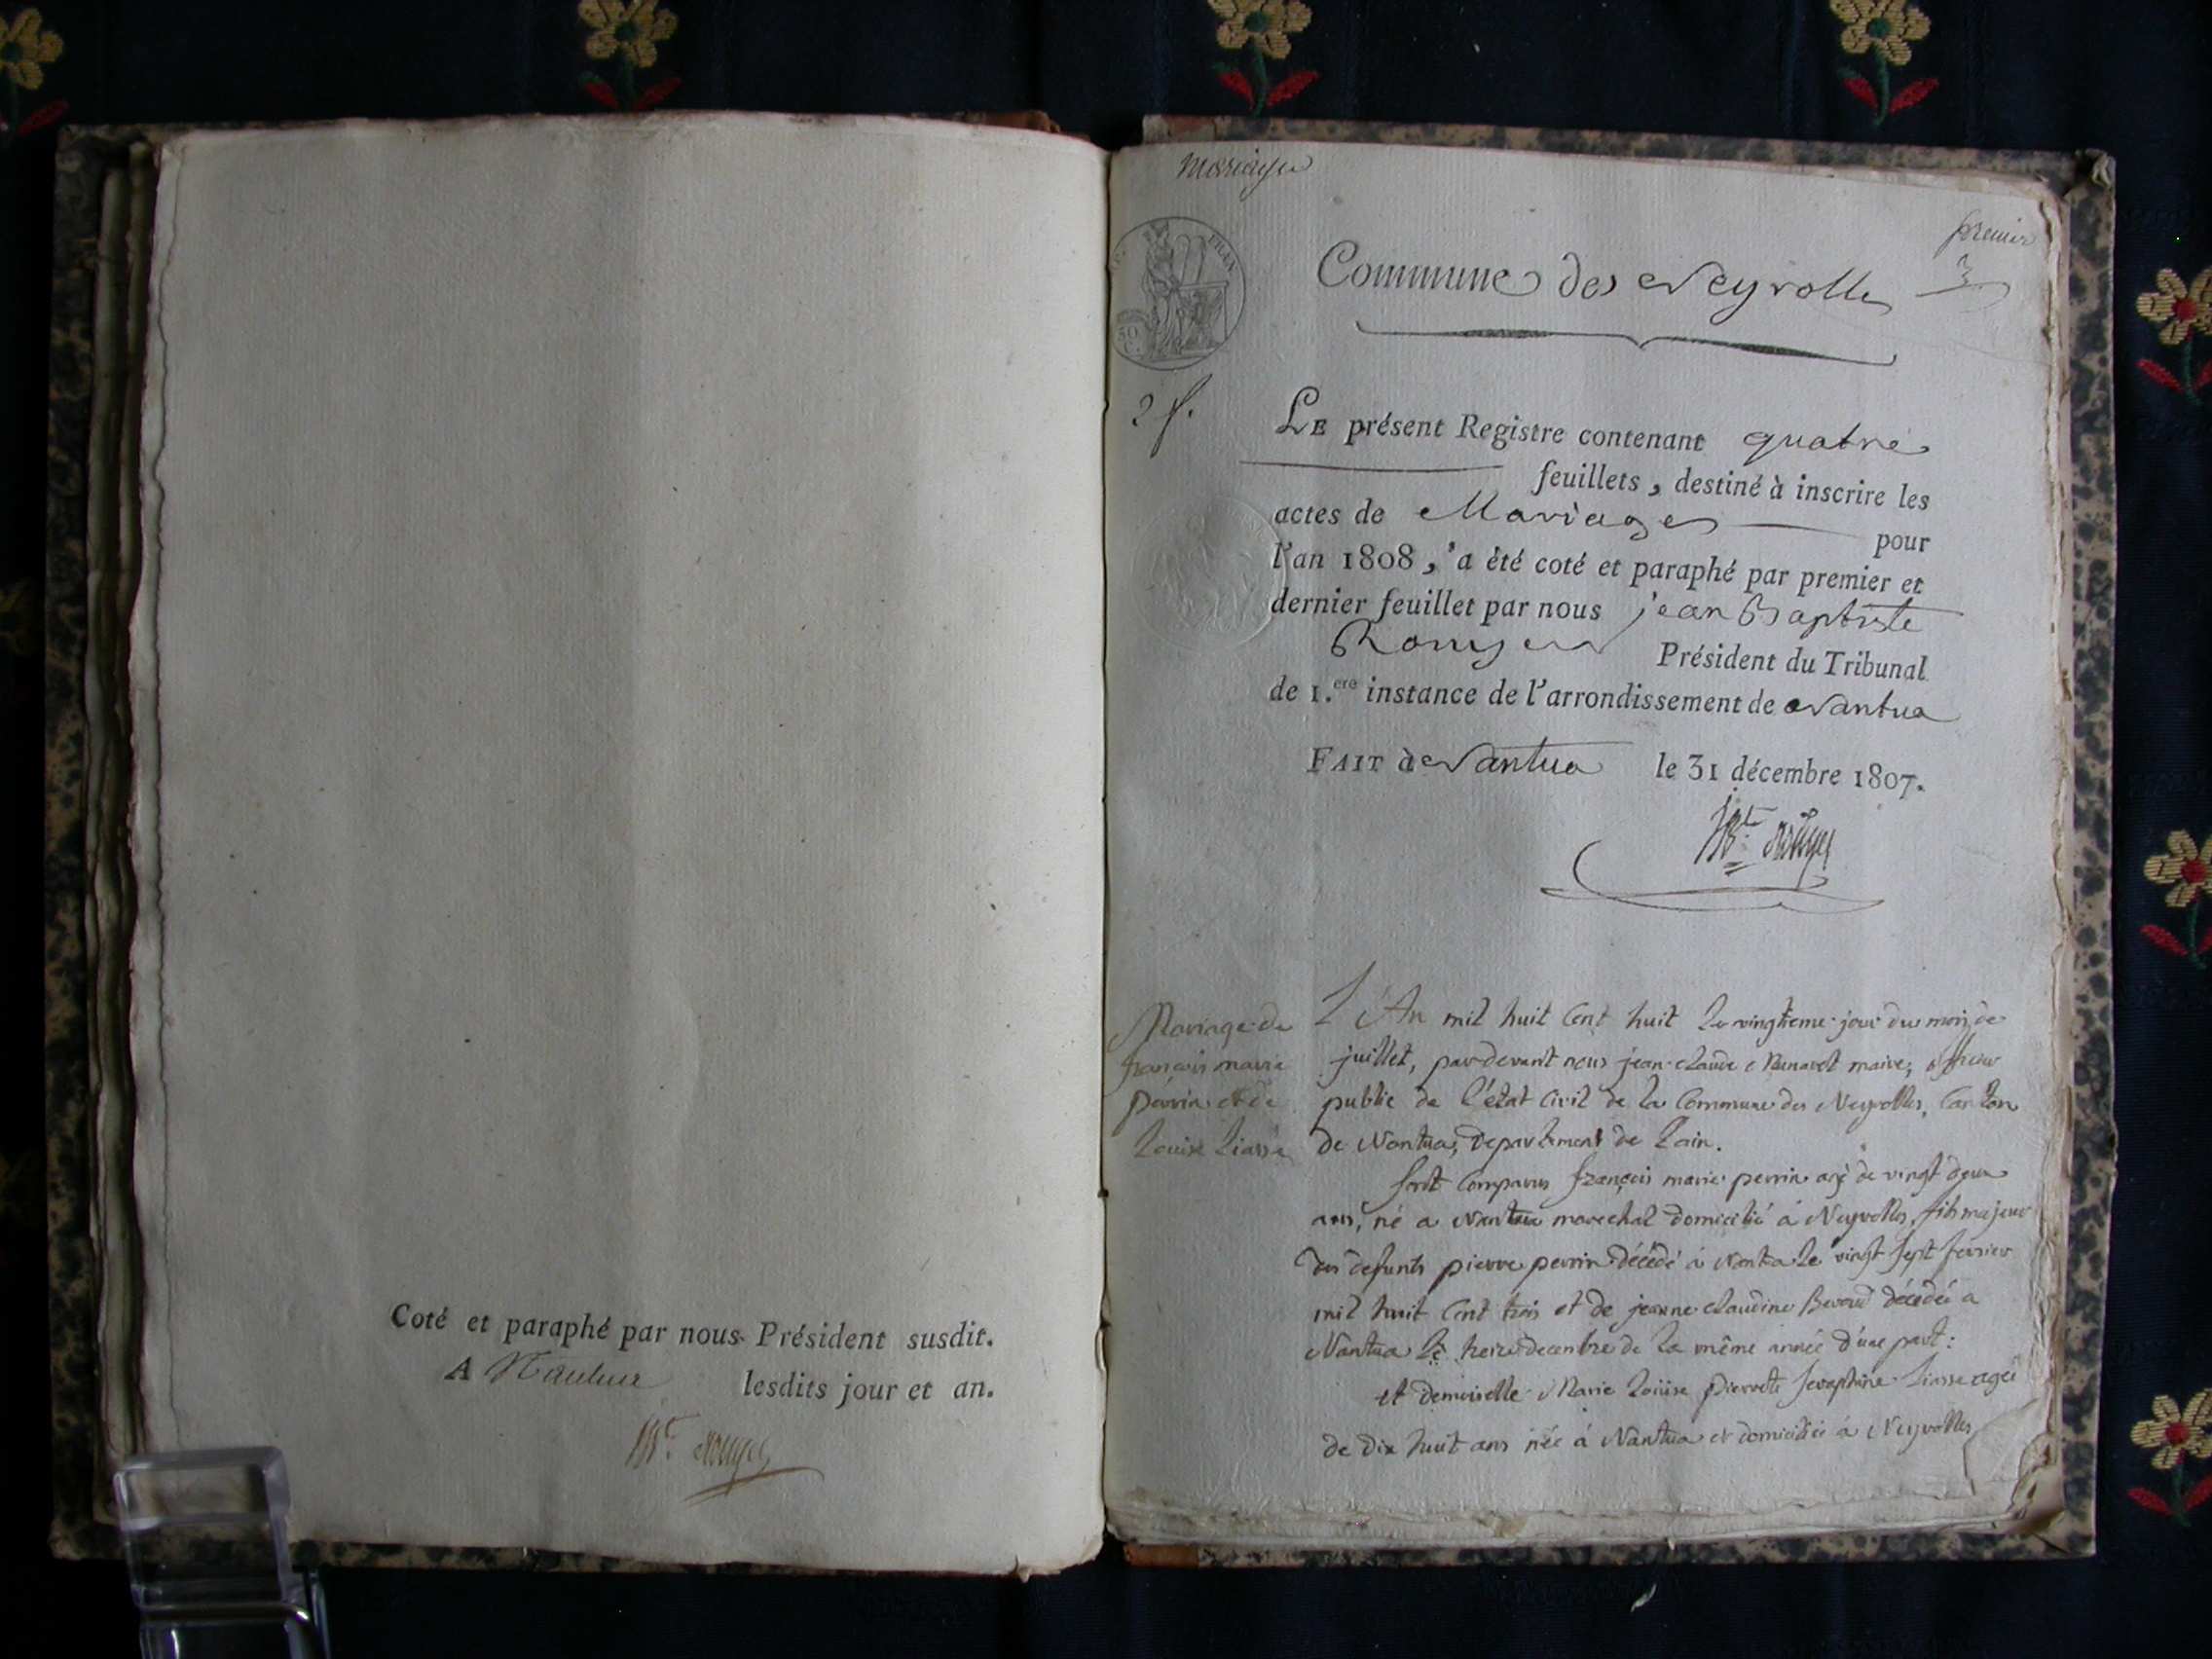 Coté et paraphé par nous Président susdit.
A Nantua lesdits jour et an.
JBte Rouyer
mariages
premier
FRAN
50
C.
Commune des Neyrolles
2 f.
LE présent Registre contenant quatre
feuillets, destiné à inscrire les
actes de Mariages pour
l'an 1808, a été coté et paraphé par premier et
dernier feuillet par nous jean Baptiste
Rouyer Président du Tribunal
de 1.ere instance de l'arrondissement de Nantua
FAIT à Nantua le 31 décembre 1807.
JBte Rouyer
Mariage de
françois marie
perrin et de
Louise Liasse
L'An mil huit Cent huit le vingtieme jour du mois de
juillet, pardevant nous jean claude maire, officier
public de l'état Civil de la Commune des Neyrolles, Canton
de Nantua, département de Lain.
sont Comparus françois marie perrin agé de vingt deux
ans, né a Nantua marechal domicilié á Neyrolles, fils majeur
des defunts pierre perrin décédé á Nantua le vingt sept fevrier
mil huit Cent trois et de jeanne claudine décédée a
Nantua le treize decembre de la même année d'une part:
et demoiselle Marie Loüise pierrette Seraphine Liasse agée
de dix huit ans née á Nantua et domiciliée á Neyrolles